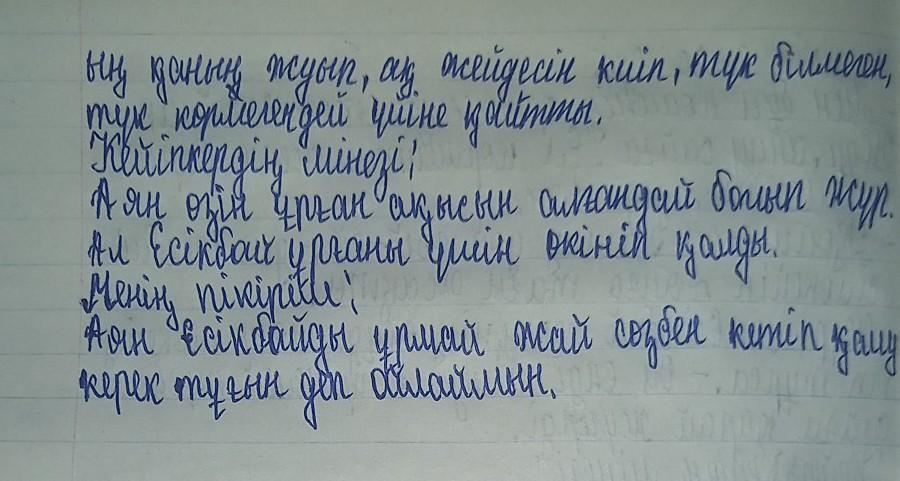 ың қанын жуып, ақ жейдесін киіп, түк білмеген,
түк көрмегендей үйіне қайтты.
Кейіпкердің мінезі:
Аян өзін ұрған ақысын алғандай болып жүр.
Ал Есікбай ұрғаны үшін өкініп қалды.
Менің пікірім:
Аян Есікбайды ұрмай жай сөзбен кетіп қалу
керек тұғын деп ойлаймын.